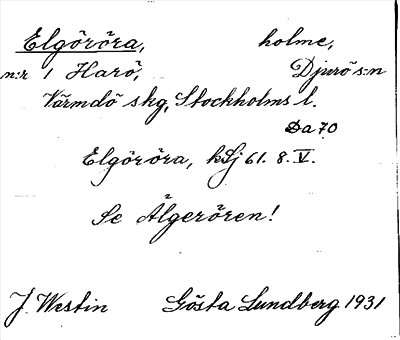 Elgöröra, holme,
n:r 1 Harö, Djurö s:n
Värmdö skg, Stockholms l.
Da 70
Elgöröra, kSj 61. 8. V.
Se Älgerören!
J. Westin Gösta Lundberg 1931